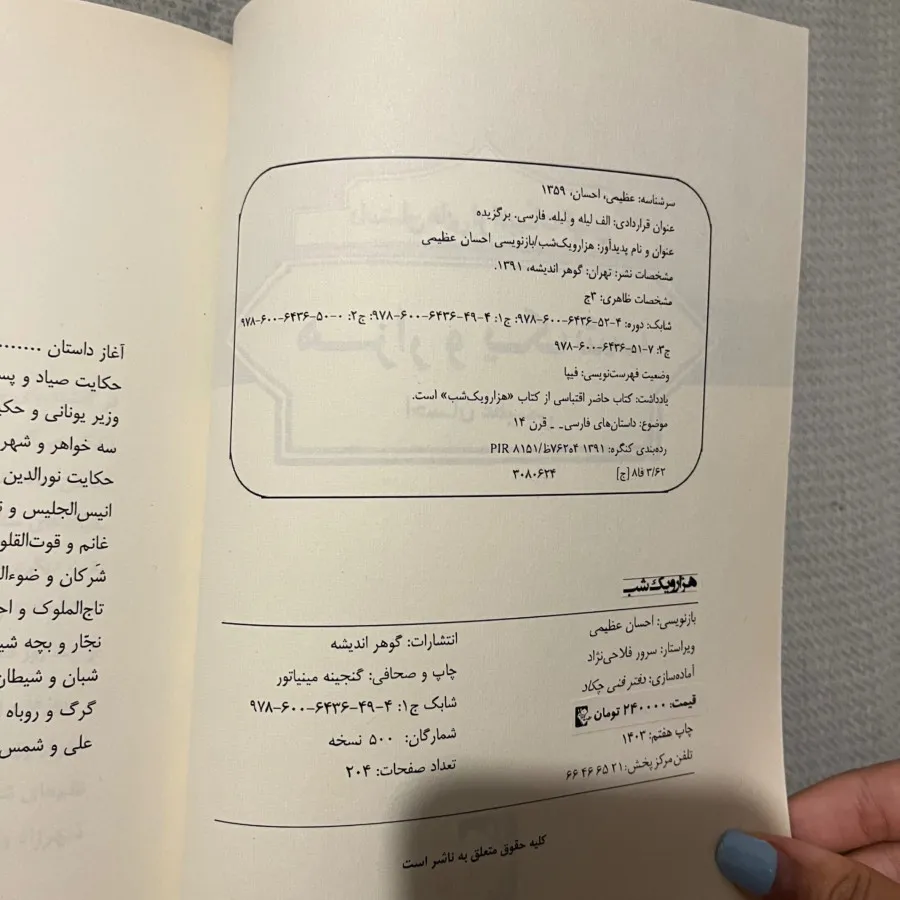 سرشناسه: عظیمی، احسان، ۱۳۵۹
عنوان قراردادی: الف لیله و لیله. فارسی. برگزیده
عنوان و نام پدیدآور: هزارویک‌شب/بازنویسی احسان عظیمی
مشخصات نشر: تهران: گوهر اندیشه، ۱۳۹۱.
مشخصات ظاهری: ۳ج
شابک: دوره: ۴-۵۲-۶۴۳۶-۶۰۰-۹۷۸؛ ج۱: ۴-۴۹-۶۴۳۶-۶۰۰-۹۷۸؛ ج۲: ۰-۵۰-۶۴۳۶-۶۰۰-۹۷۸
ج۳: ۷-۵۱-۶۴۳۶-۶۰۰-۹۷۸
وضعیت فهرست‌نویسی: فیپا
یادداشت: کتاب حاضر اقتباسی از کتاب «هزارویک‌شب» است.
موضوع: داستان‌های فارسی-- قرن ۱۴
رده‌بندی کنگره: ۱۳۹۱ ۴ه۷۶۲ظ/PIR ۸۱۵۱
۳/۶۲ فا۸ [ج] ۳۰۸۰۶۲۴
هزارویک‌شب
بازنویسی: احسان عظیمی
ویراستار: سرور فلاحی‌نژاد
آماده‌سازی: دفتر فنی چکاد
قیمت: ۲۴۰۰۰۰ تومان
چاپ هفتم: ۱۴۰۳
تلفن مرکز پخش: ۲۱ ۶۵ ۴۶ ۶۶
انتشارات: گوهر اندیشه
چاپ و صحافی: گنجینه مینیاتور
شابک ج۱: ۴-۴۹-۶۴۳۶-۶۰۰-۹۷۸
شمارگان: ۵۰۰ نسخه
تعداد صفحات: ۲۰۴
کلیه حقوق متعلق به ناشر است
آغاز داستان ........
حکایت صیاد و
وزیر یونانی و
سه خواهر و
حکایت نورالدین
انیس‌الجلیس و
غانم و
شَرکان و
تاج‌الملوک و
نجّار و بچه
شبان و
گرگ و روباه
علی و شمس